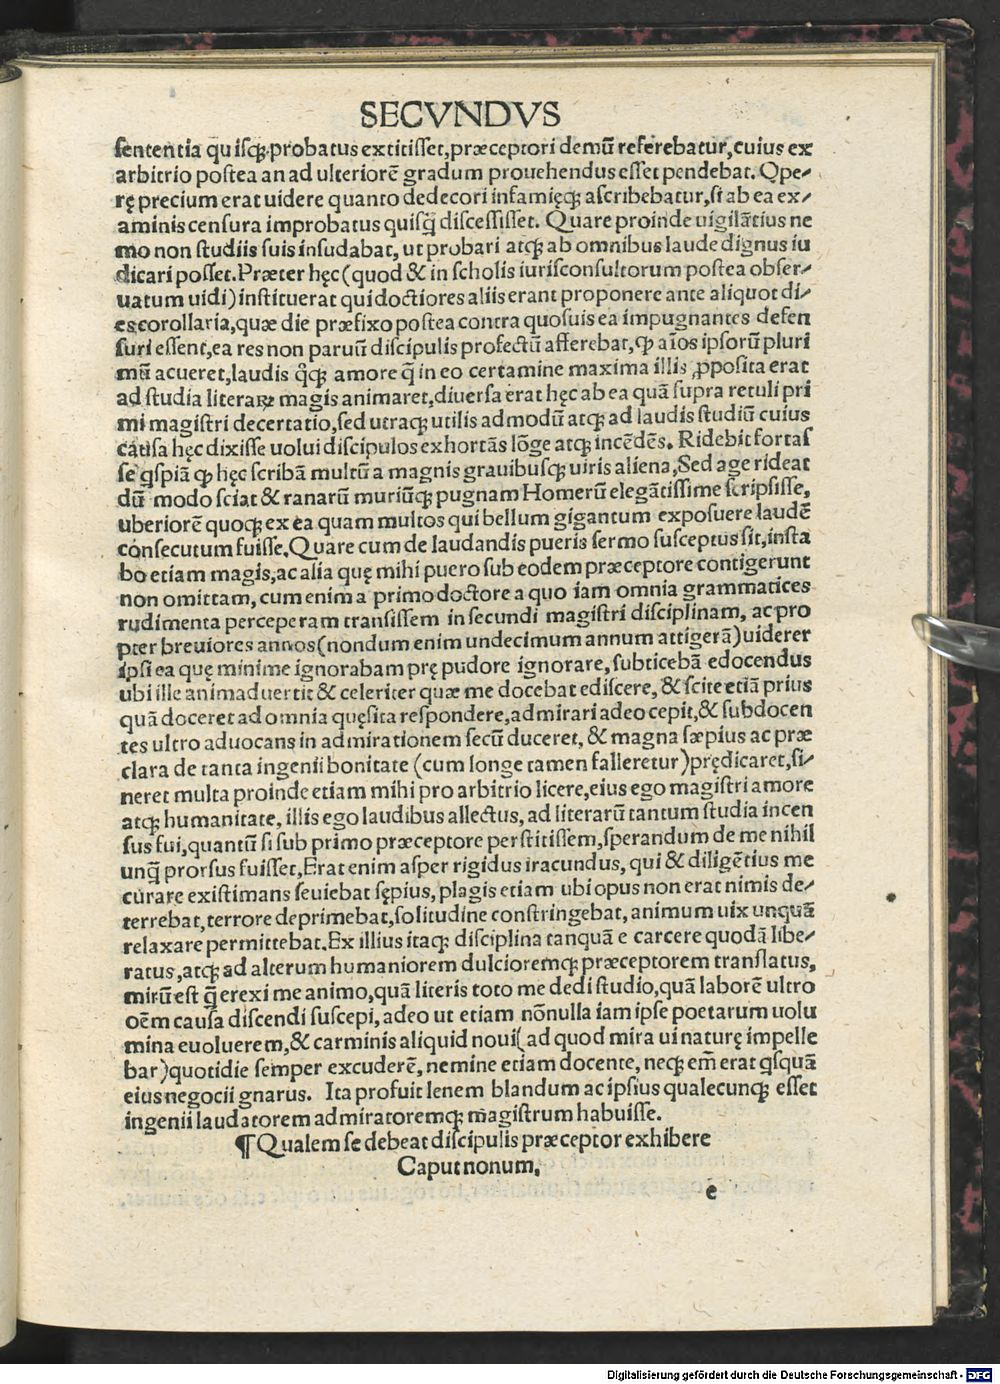 SECVNDVS
ſententia quiſqꝫ probatus extitiſſet, præceptori demū referebatur, cuius ex
arbitrio poſtea an ad ulteriorē gradum prouehendus eſſet pendebat. Ope⸗
rę precium erat uidere quanto dedecori infamięqꝫ aſcribebatur, ſi ab ea ex⸗
aminis cenſura improbatus quiſq̄ diſceſſiſſet. Quare proinde uigilātius ne
mo non ſtudiis ſuis inſudabat, ut probari atqꝫ ab omnibus laude dignus iu
dicari poſſet. Præter hęc (quod & in ſcholis iuriſconſultorum poſtea obſer⸗
uatum uidi) inſtituerat qui doctiores aliis erant proponere ante aliquot di⸗
es corollaria, quæ die præfixo poſtea contra quoſuis ea impugnantes defen
ſuri eſſent, ea res non paruū diſcipulis profectū afferebat, ꝙ aīos ipſorū pluri
mū acueret, laudis qͦqꝫ amore q̄ in eo certamine maxima illis ꝓpoſita erat
ad ſtudia literaꝝ magis animaret, diuerſa erat hęc ab ea quā ſupra retuli pri
mi magiſtri decertatio, ſed utraqꝫ utilis admodū atqꝫ ad laudis ſtudiū cuius
cauſa hęc dixiſſe uolui diſcipulos exhortās lōge atqꝫ incēdēs. Ridebit fortaſ
ſe qſpiā ꝙ hęc ſcribā multū a magnis grauibuſqꝫ uiris aliena, Sed age rideat
dū modo ſciat & ranarū muriūqꝫ pugnam Homerū elegātiſſime ſcripſiſſe,
uberiorē quoqꝫ ex ea quam multos qui bellum gigantum expoſuere laudē
conſecutum fuiſſe. Quare cum de laudandis pueris ſermo ſuſceptus ſit, inſta
bo etiam magis, ac alia quę mihi puero ſub eodem præceptore contigerunt
non omittam, cum enim a primo doctore a quo iam omnia grammatices
rudimenta perceperam tranſiſſem in ſecundi magiſtri diſciplinam, ac pro
pter breuiores annos (nondum enim undecimum annum attigerā) uiderer
ipſi ea quę minime ignorabam prę pudore ignorare, ſubticebā edocendus
ubi ille animaduertit & celeriter quæ me docebat ediſcere, & ſcite etiā prius
quā doceret ad omnia quęſita reſpondere, admirari adeo cepit, & ſubdocen
tes ultro aduocans in admirationem ſecū duceret, & magna ſæpius ac præ
clara de tanta ingenii bonitate (cum longe tamen falleretur) prędicaret, ſi⸗
neret multa proinde etiam mihi pro arbitrio licere, eius ego magiſtri amore
atqꝫ humanitate, illis ego laudibus allectus, ad literarū tantum ſtudia incen
ſus fui, quantū ſi ſub primo præceptore perſtitiſſem, ſperandum de me nihil
unq̄ prorſus fuiſſet, Erat enim aſper rigidus iracundus, qui & diligētius me
curare exiſtimans ſeuiebat ſępius, plagis etiam ubi opus non erat nimis de⸗
terrebat, terrore deprimebat, ſolitudine conſtringebat, animum uix unquā
relaxare permittebat. Ex illius itaqꝫ diſciplina tanquā e carcere quodā libe⸗
ratus, atqꝫ ad alterum humaniorem dulcioremqꝫ præceptorem tranſlatus,
mirū eſt q̄ erexi me animo, quā literis toto me dedi ſtudio, quā laborē ultro
oēm cauſa diſcendi ſuſcepi, adeo ut etiam nōnulla iam ipſe poetarum uolu
mina euoluerem, & carminis aliquid noui (ad quod mira ui naturę impelle
bar) quotidie ſemper excuderē, nemine etiam docente, neqꝫ em̄ erat qſquā
eius negocii gnarus. Ita profuit lenem blandum ac ipſius qualecunqꝫ eſſet
ingenii laudatorem admiratoremqꝫ magiſtrum habuiſſe.
¶ Qualem ſe debeat diſcipulis præceptor exhibere
Caput nonum.
e
Digitalisierung gefördert durch die Deutsche Forschungsgemeinschaft - DFG